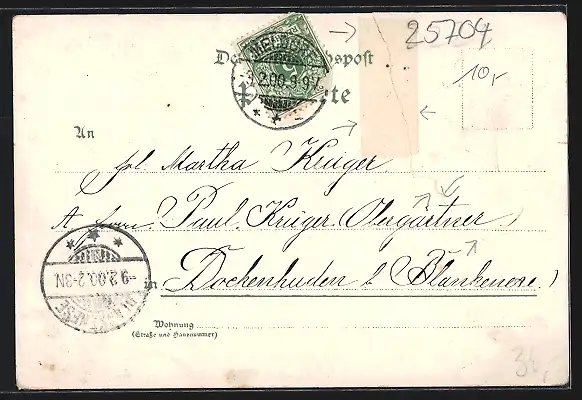 25704
10,-
3.2.00.3-9
An
frl. Martha Krüger
A. Herrn Paul Krüger (Obergärtner)
in Dockenhuden b/ Blankenese.
9.2.00.2-3N
Wohnung
(Straße und Hausnummer)